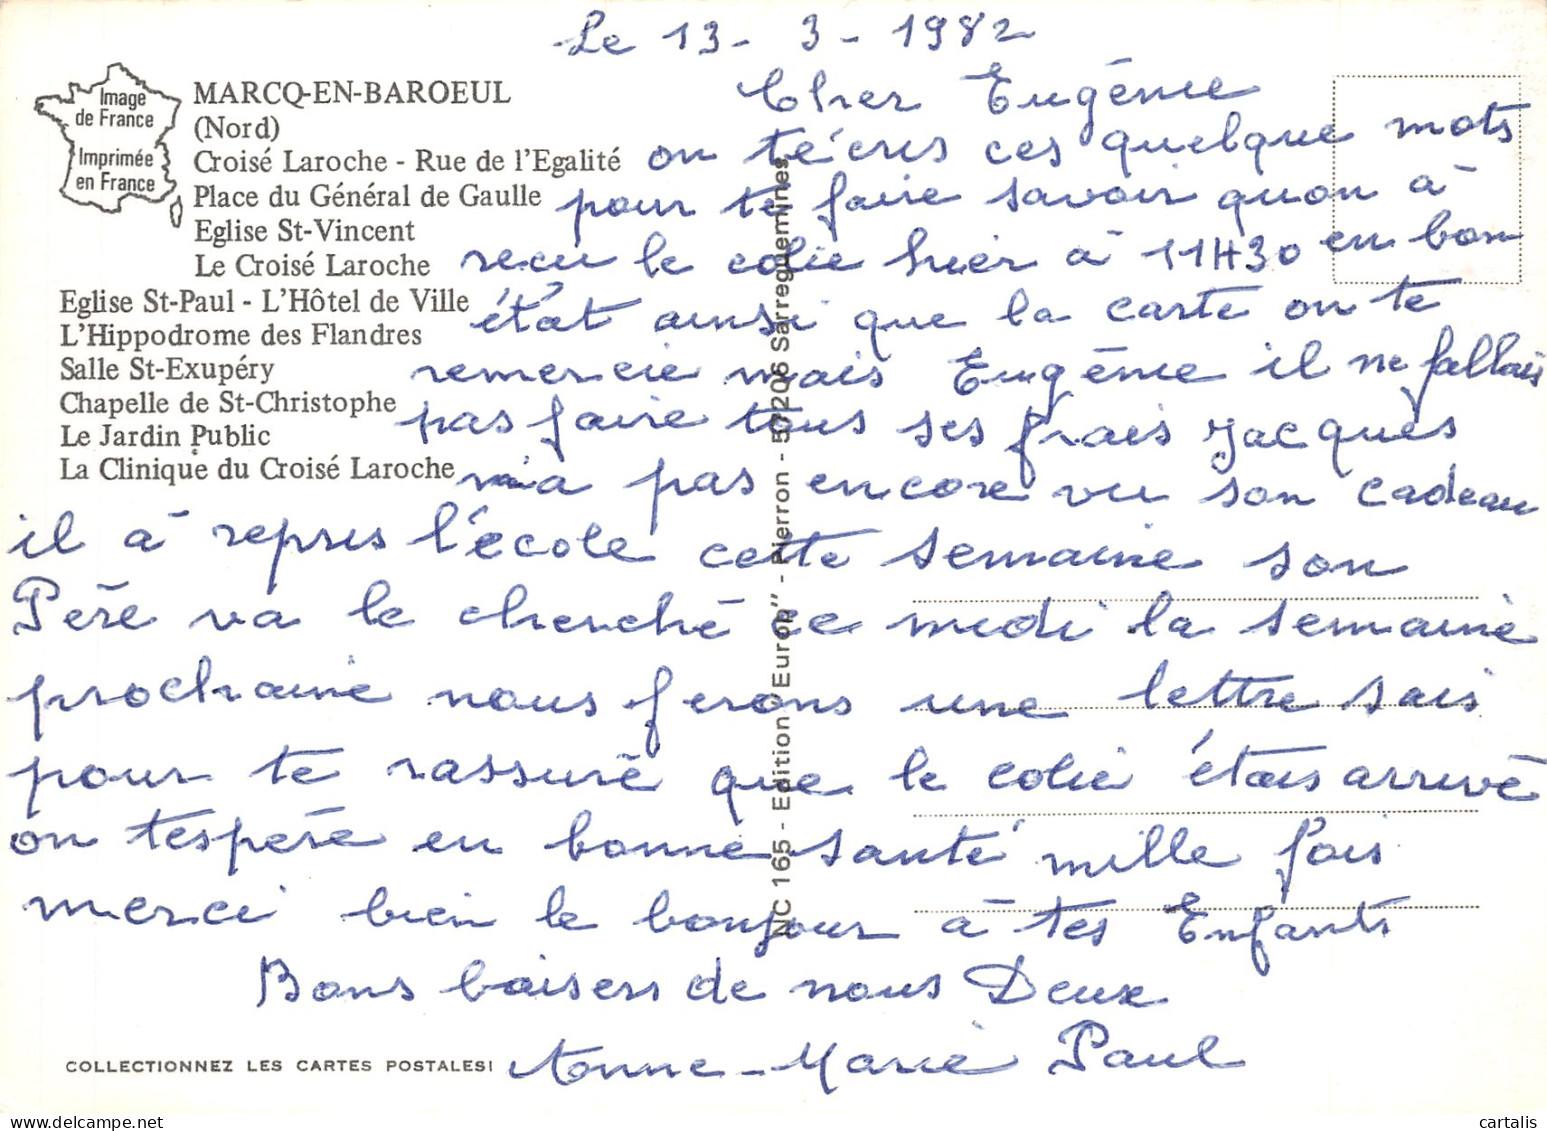 Le 13 - 3 - 1982
Image
de France
Imprimée
en France
MARCQ-EN-BAROEUL
(Nord)
Croisé Laroche - Rue de l'Egalité
Place du Général de Gaulle
Eglise St-Vincent
Le Croisé Laroche
Eglise St-Paul - L'Hôtel de Ville
L'Hippodrome des Flandres
Salle St-Exupéry
Chapelle de St-Christophe
Le Jardin Public
La Clinique du Croisé Laroche
Cher Eugénie
on té'cris ces quelque mots
pour te faire savoir quon à
reçu le colie hier à 11H30 en bon
état ainsi que la carte on te
remercie mais Eugénie il ne fallais
pas faire tous ses frais Jacques
n'a pas encore vu son cadeau
il à repris l'école cette semaine son
Père va le cherché ce midi la semaine
prochaine nous ferons une lettre sais
pour te rassuré que le colie étais arrivé
on tespère en bonne santé mille fois
merci bien le bonjour à tes Enfants
Bons baisers de nous Deux
Anne-Marie Paul
NC 165 - Edition "Europ" - Pierron - 57206 Sarreguemines
COLLECTIONNEZ LES CARTES POSTALES!
cartalis